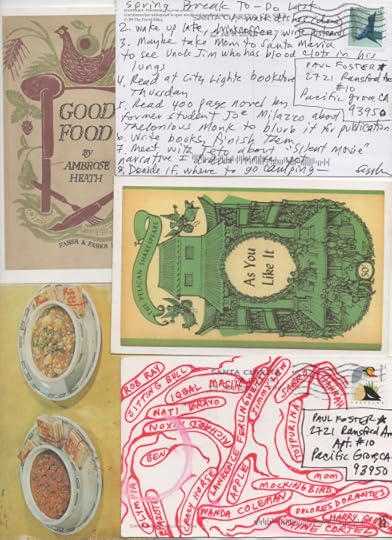 Spring Break To-Do List
2. wake up late,
3. Maybe take Mom to Santa Maria
to see Uncle Jim who has blood clots in his
lungs
4. Read at City Lights bookstore
Thursday
5. Read 400 page novel by
former student Joe Milazzo about
Thelonious Monk to blurb it for publication
6. Write books, finish them
7. Meet with Toto about "Silent Movie"
narrative I
8. Decide if, where to go camping—
PAUL FOSTER
2721 Ransford Ave
#10
Pacific grove CA
93950
GOOD
FOOD
BY
AMBROSE
HEATH
FABER & FABER
THE PELICAN SHAKESPEARE
As You
Like It
50
SANTA CLARITA
ROB RAY
SITTING BULL
IQBAL MASIH
NATI BRAVO
RICHARD NIXON
BEN
LAWRENCE FERLINGHETTI
JIMMY
TOYPURINA
HANNAH
OLIMPIA
CRAZY HORSE
APPLE
WANDA COLEMAN
MOCKINGBIRD
MOM
DOLORES DORANTES
HARRY
JAYNE CORTEZ
PAUL FOSTER
2721 Ransford Ave
Apt. #10
Pacific Grove CA
93950